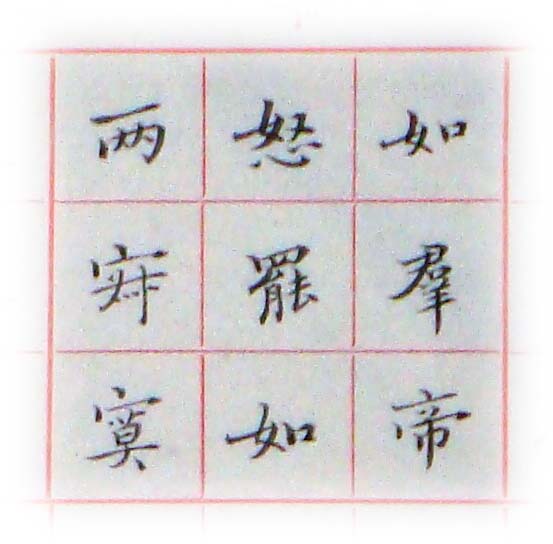 如羣帝
怒罷如
两寂寞